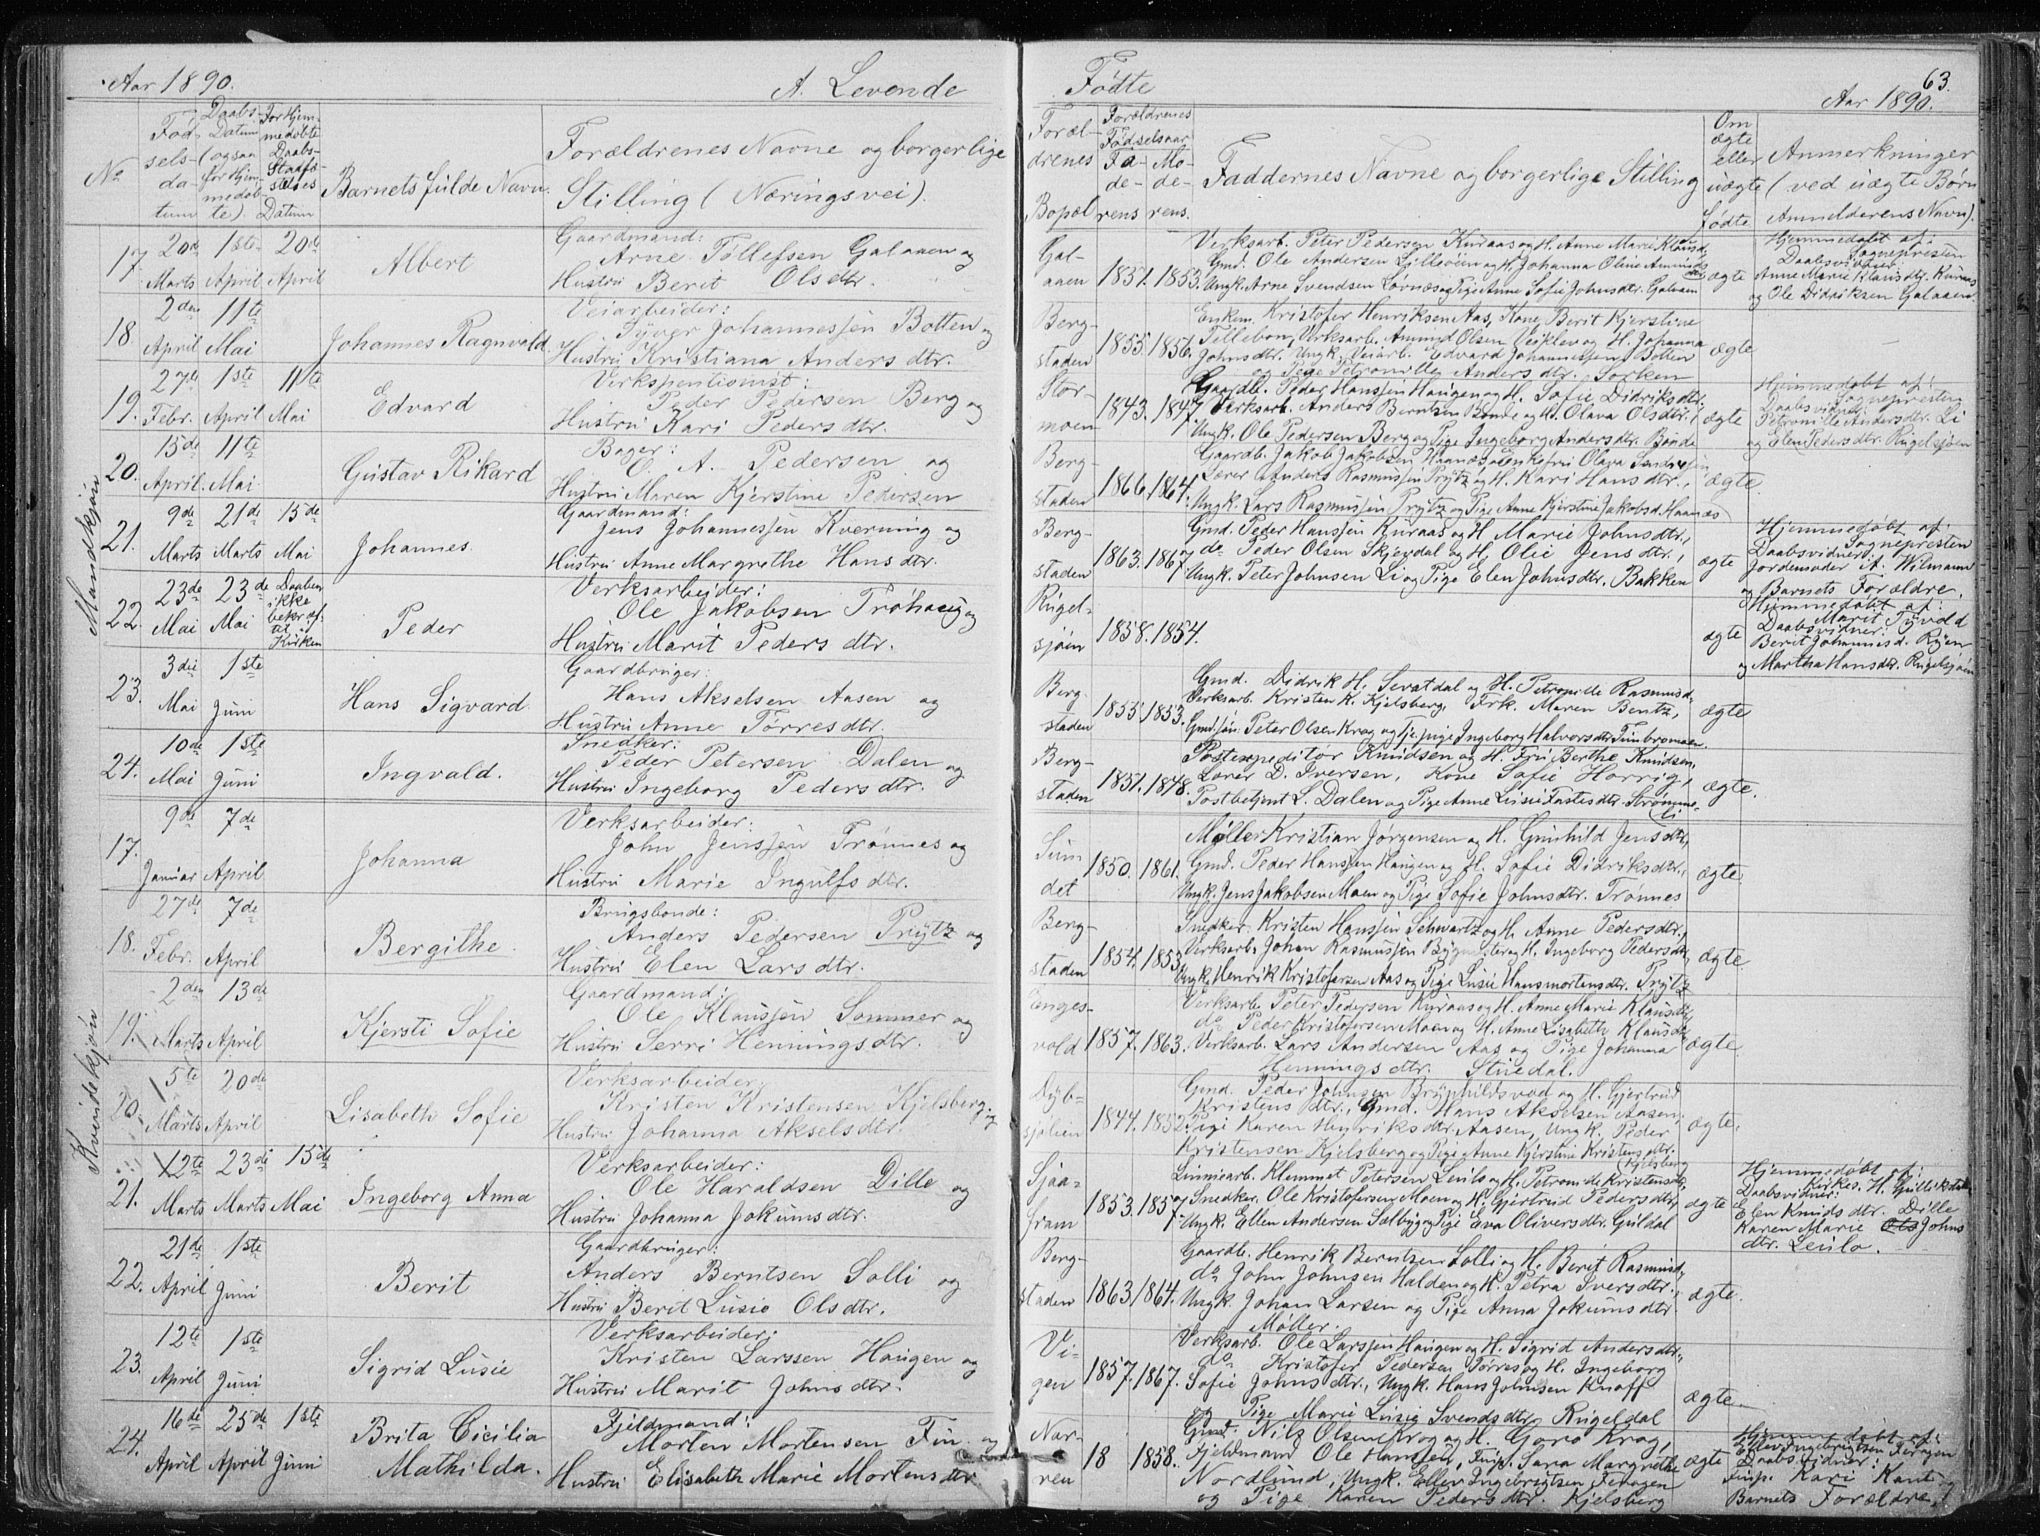 Aar 1890. A. Levende
Nº Fødselsdatum Daabs-Datum (ogsaa for Hjemmedøbte). For Hjemmedøbte Daabs-Stadfæstelses Datum Barnets fulde Navn. Forældrenes Navne og borgerlige Stilling (Næringsvei).
Mandkjøn
17. 20de Marts 1ste April 20de April Albert Gaardmand: Arne Tollefsen Galaaen og
Hustru Berit Olsdtr.
18. 2den April 11te Mai Johannes Ragnvald Veiarbeider: Syver Johannessen Botten og
Hustru Kristiana Andersdtr.
19. 27de Febr. 1ste April 11te Mai Edvard Verkspentionist: Peder Pedersen Berg og
Hustru Kari Pedersdtr.
20. 15de April. 11te Mai Gustav Rikard Bager: C. A. Pedersen og
Hustru Maren Kjerstine Pedersen
21. 9de Marts 21de Marts 15de Mai Johannes. Gaardmand: Jens Johannessen Kverning og
Hustru Anne Margrethe Hansdtr.
22. 23de Mai 23de Mai Daaben ikke bekræftet i Kirken Peder Verksarbeider: Ole Jakobsen Trøhaug og
Hustru Marit Pedersdtr.
23. 3die Mai 1ste Juni Hans Sigvard Gaardbruger: Hans Akselsen Aasen og
Hustru Anne Torresdtr.
24. 10de Mai 1ste Juni Ingvald. Snedker: Peder Petersen Dalen og
Hustru Ingeborg Pedersdtr.
Kvindekjøn
17. 9de Januar 7de April Johanna Verksarbeider: John Jenssen Trønnes og
Hustru Marie Ingulfsdtr.
18. 27de Febr. 7de April Bergithe. Brugsbonde: Anders Pedersen Prytz og
Hustru Elen Larsdtr.
19. 2den Marts 13de April Kjersti Sofie Gaardmand: Ole Klaussen Sommer og
Hustru Serri Henningsdtr.
20. 5te Marts 20de April Lisabeth Sofie Verksarbeider: Kristen Kristensen Kjelsberg og
Hustru Johanna Akselsdtr.
21. 12te Marts 23de Marts 15de Mai Ingeborg Anna Verksarbeider: Ole Haraldsen Dille og
Hustru Johanna Jokumsdtr.
22. 21de April 1ste Juni Berit Gaardbruger: Anders Berntsen Solli og
Hustru Berit Lusie Olsdtr.
23. 12te April 1ste Juni Sigrid Lusie Verksarbeider: Kristen Larssen Haugen og
Hustru Marit Johnsdtr.
24. 16de April 25de April 1ste Juni Brita Cicilia Mathilda. Fjeldmand: Morten Mortensen Fin og
Hustru Elisabeth Marie Mortensdtr
Fødte Aar 1890. 63.
Forældrenes Bopæl Forældrenes Fødselsaar Faderens Moderens. Faddernes Navne og borgerlige Stilling Om ægte eller uægte Fødte Anmerkninger (ved uægte Børn Anmelderens Navn).
Galaaen 1851. 1853. Verksarb. Peter Pedersen Kuraas og H. Anne Marie Klausd.
Gmd. Ole Andersen Lilleøien og H. Johanna Oline Amundsdtr
Ungk. Arne Svendsen Lovnæs og Pige Anne Sofie Johnsdtr. Galaaen ægte
Hjemmedøbt af: Sognepresten Daabsvidner: Anne Marie Klausdtr. Kuraas
og Ole Didriksen Galaaen.
Bergstaden 1855. 1856. Enkem. Kristofer Henriksen Aas, Kone Berit Kjerstine
Tillebon, Verksarb. Amund Olsen Veiklev og H. Johanna
Johnsdtr. Ungk. Veiarb. Edvard Johannessen Botten
og Pige Petronille Andersdtr. Sorken ægte
Stormoen 1843. 1847 Gaardb. Peder Hanssen Haugen og H. Sofie Didriksdtr.
Verksarb. Anders Berntsen Bonde og H. Olava Olsdtr.,
Ungk. Ole Pedersen Berg og Pige Ingeborg Andersdtr. Bonde ægte
Hjemmedøbt af: Sognepresten Daabsvidner: Petronille Andersdtr. Li
og Elen Pedersdtr. Rugelsjøen
Bergstaden 1866. 1864. Gaardb. Jakob Jakobsen Haanæs, Enkefru Olava
Lærer Anders Rasmussen Prytz og H. Kari Hansdtr.,
Ungk. Lars Rasmussen Prytz og Pige Anne Kjerstine Jakobsd. Haanæs ægte.
Bergstaden 1863. 1867 Gmd. Peder Hanssen Kuraas og H. Marie Johnsdtr.,
do Peder Olsen Skjevdal og H. Olie Jensdtr.,
Ungk. Peter Johnsen Li og Pige Elen Johnsdtr. Bakken ægte
Hjemmedøbt af: Sognepresten Daabsvidner: Jordemoder A. Wilmann
og Barnets Forældre.
Rugelsjøen 1858. 1854. ægte
Hjemmedøbt af: Marit Tyvold Daabsvidner:
Berit Johannesd. Ryen
og Martha Hansdtr. Rugelsjøen
Bergstaden 1855. 1853. Gmd. Didrik H. Sevatdal og H. Petronille Rasmusd.
Verksarb. Kristen K. Kjelsberg, Frk. Maren Bentz,
Gmdssøn Peter Olsen Krog og Tj.pige Ingeborg Halvorsdtr. Timbromoen. ægte
Bergstaden 1851. 1848. Postexpeditør Knudsen og H. Fru Berthe Knudsen,
Lærer D. Iversen, Kone Sofie Horrig,
Postbetjent L. Dalen og Pige Anne Lusie Fastesdtr. Strømmeli ægte.
Sundet 1850. 1861. Møller Kristian Jørgensen og H. Gunhild Jensdtr.,
Gmd. Peder Hanssen Haugen og H. Sofie Didriksdtr.,
Ungk. Jens Jakobsen Moen og Pige Sofie Johnsdtr. Trønnes ægte.
Bergstaden 1854. 1853. Snedker Kristen Hanssen Schwartz og H. Anne Pedersdtr.,
Verksarb. Johan Rasmussen Bygmester og H. Ingeborg Pedersdtr.
Ungk. Henrik Kristofersen Aas og Pige Lusie Hansmortensdtr. Prytz ægte
Engesvold 1857. 1863. Verksarb. Peter Pedersen Kuraas og H. Anne Marie Klausdtr.
do Peder Kristofersen Moen og H. Anne Lisabeth Klausdtr.
Verksarb. Lars Andersen Aas og Pige Johanna
Henningsdtr. Stuedal. ægte
Dybsjølien 1844. 1852. Gmd. Peder Johnsen Brynhildsvod og H. Gjertrud
Kristensdtr., Gmd. Hans Akselsen Aasen,
Pige Karen Henriksdtr. Aasen, Ungk. Peder
Kristensen Kjelsberg og Pige Anne Kjerstine Kristensdtr. Kjelsberg ægte.
Sjaafram 1853. 1857. Linniearb. Klemmet Petersen Leulo og H. Petronille Kristensdtr.
Snedker. Ole Kristofersen Moen og H. Gjertrud Pedersdtr.
Ungk. Ellen Andersen Salbyg og Pige Eva Oliversdtr. Guldal ægte
Hjemmedøbt af: Kirkes. H. Gulliksta Daabsvidner:
Elen Knudsdtr. Dille
Karen Marie Ols Johns
dtr. Leulo.
Bergstaden 1863 1864. Gaardb. Henrik Berntsen Solli og H. Berit Rasmusd.
do John Johnsen Halden og H. Petra Iversdtr.,
Ungk. Johan Larsen og Pige Anna Jokumsdtr
Møller. ægte.
Vigen 1857. 1867. Verksarb. Ole Larssen Haugen og H. Sigrid Andersdtr.,
do Kristofer Pedersen Torres og H. Ingeborg
Sofie Johnsdtr., Ungk. Hans Johnsen Knoff
og Pige Marie Lusie Svendsdtr. Rugeldal ægte
Narren 18 1858. Gmd. Nils Olsen Krog og H. Goro Krog,
Fjeldmand Ole Hanssen, Sara Margrethe
Nordlund, Ungk. Ellev Ingebrigtsen Feragen
og Pige Karen Pedersdtr. Kjelsberg ægte
Hjemmedøbt af: Ellev Ingebrigtsen Feragen Daabsvidner:
Kari Kant og
Barnets Forældre.